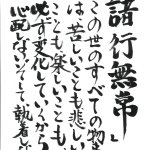 諸行無常」
この世のすべての物事
は苦しいことも悲しい
ことも楽しいことも
必ず変化していくから
心配ないそして執着しな